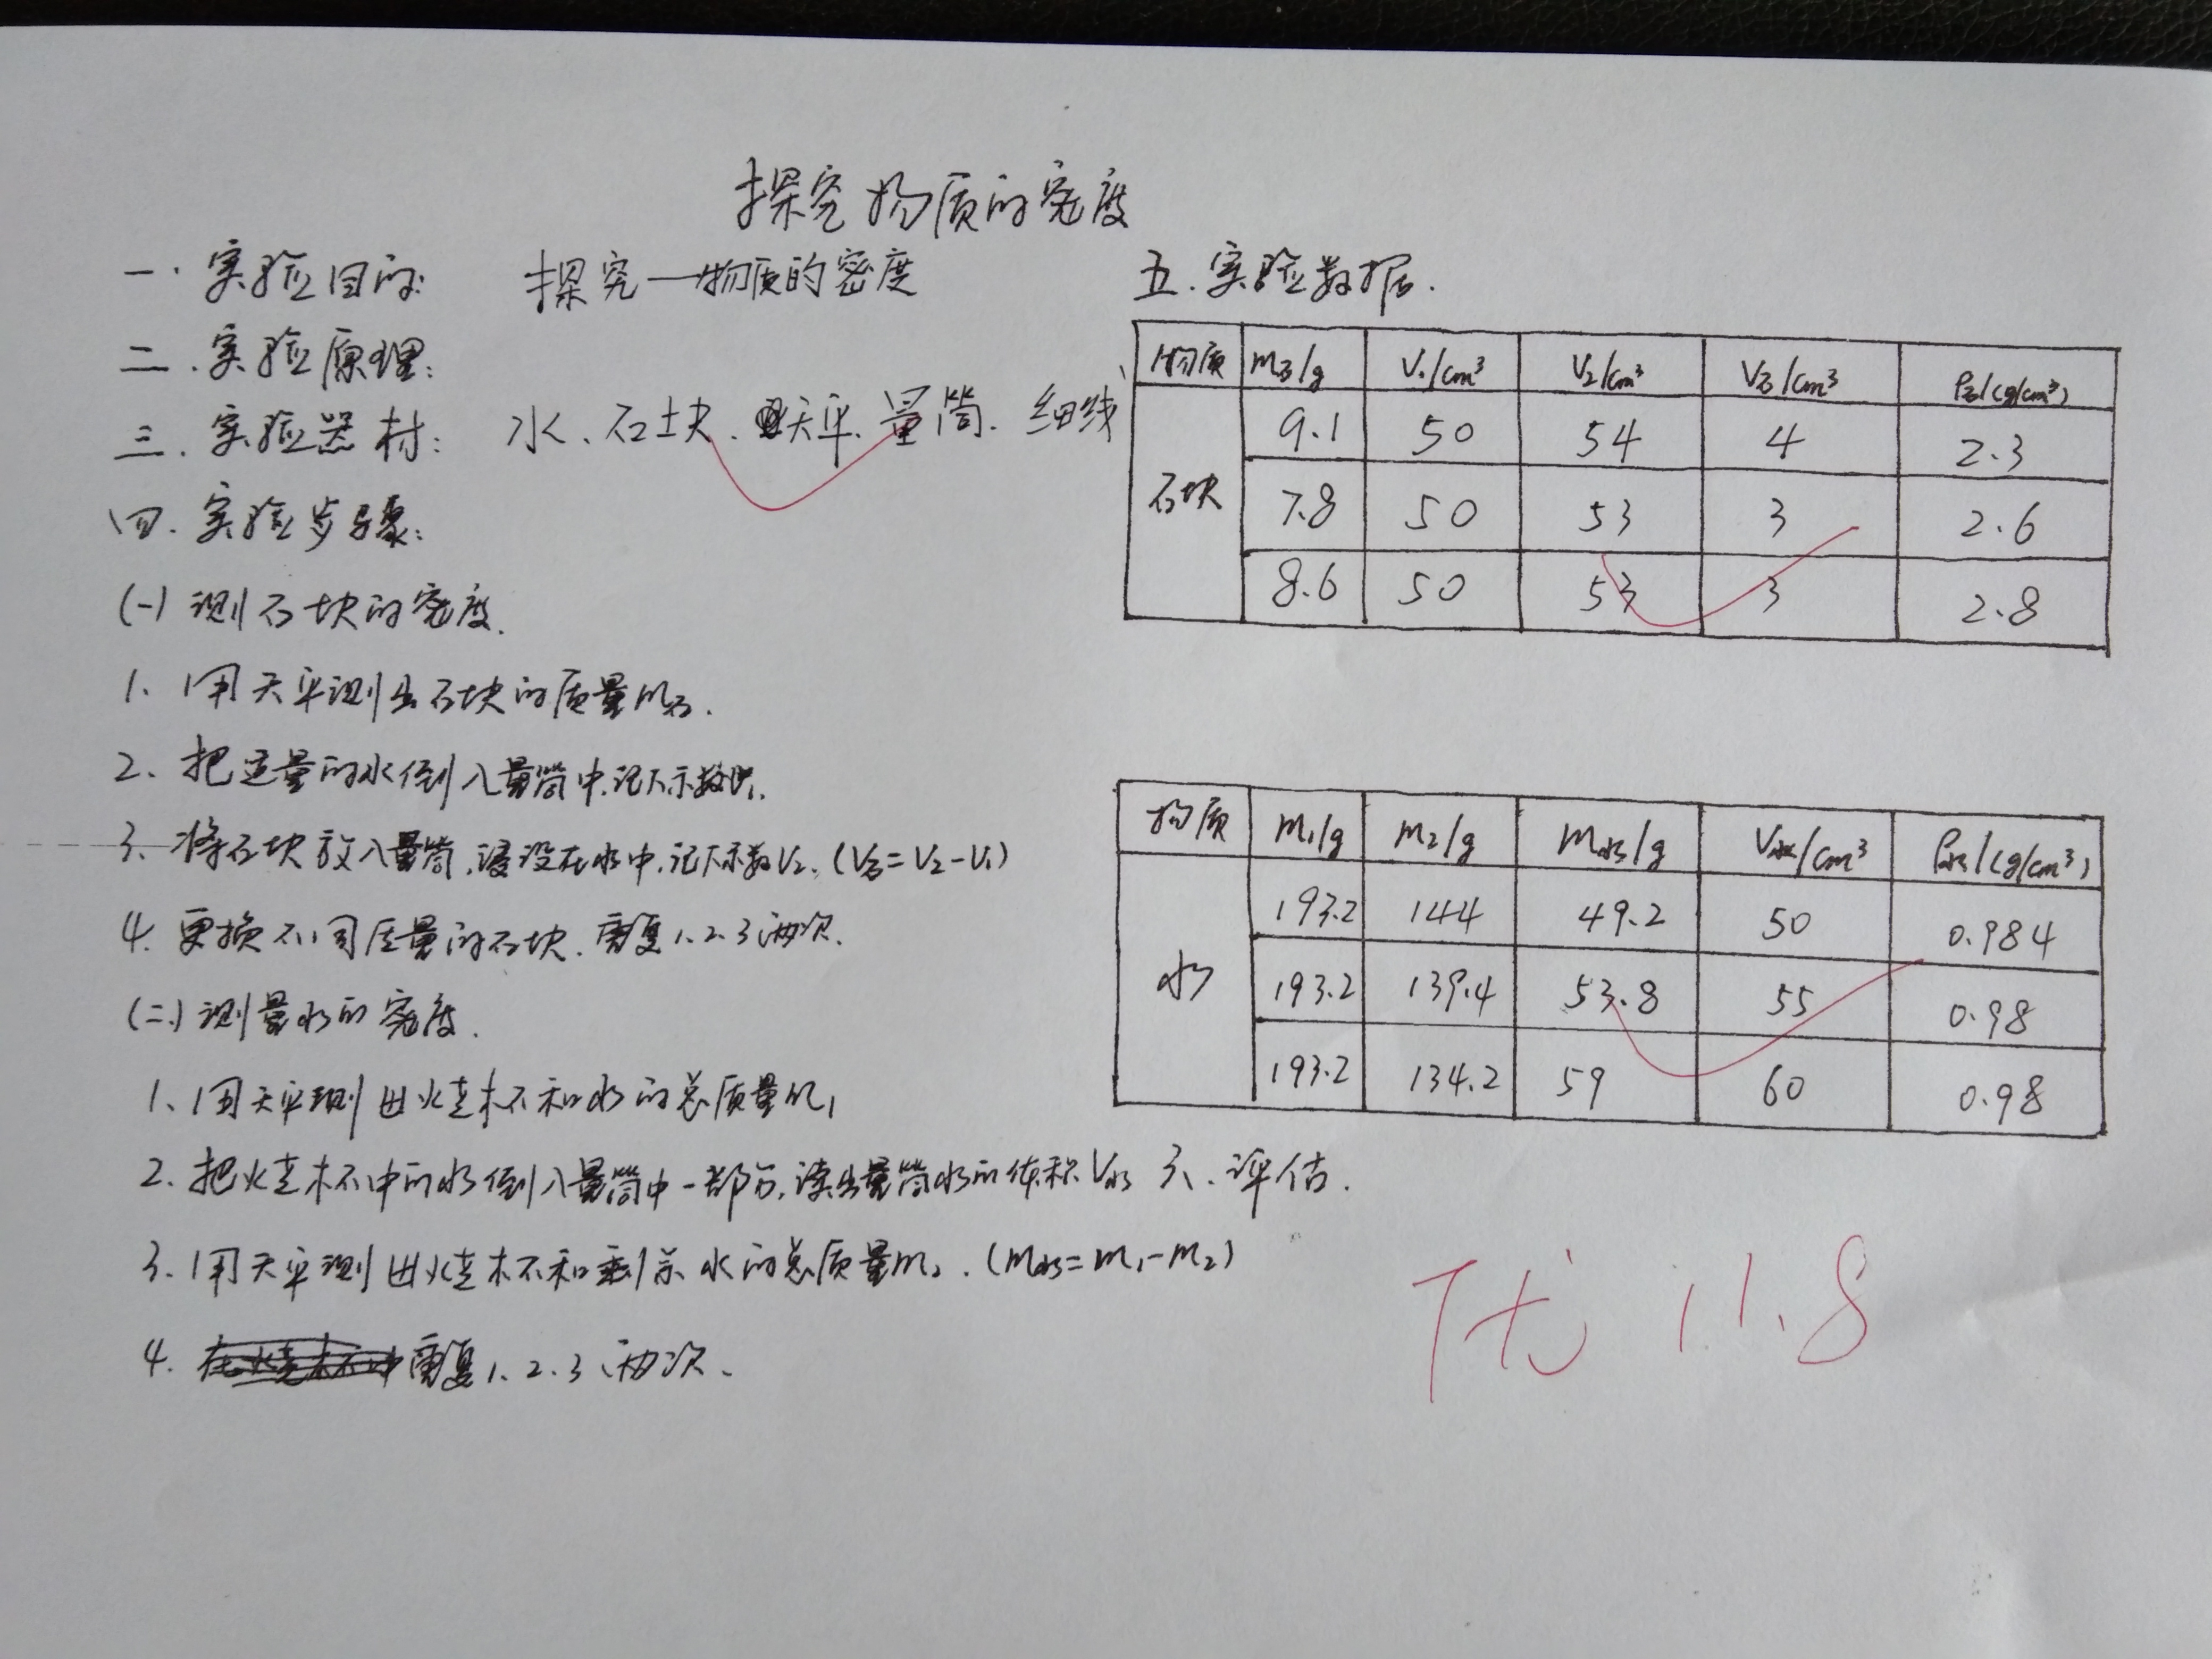 探究物质的密度
一. 实验目的: 探究一物质的密度
二. 实验原理:
三. 实验器材: 水、石块、天平、量筒、细线
四. 实验步骤:
(一) 测石块的密度.
1、用天平测出石块的质量m石.
2、把适量的水倒入量筒中,记下示数V1.
3、将石块放入量筒,浸没在水中,记下示数V2. (V石=V2-V1)
4. 更换不同质量的石块. 重复1.2.3两次.
(二) 测量水的密度.
1、用天平测出烧杯和水的总质量m1
2. 把烧杯中的水倒入量筒中一部分,读出量筒水的体积V水
3. 用天平测出烧杯和剩余水的总质量m2. (m水=m1-m2)
4. 重复1、2、3两次、
五. 实验数据.
物质 m石/g V1/cm³ V2/cm³ V石/cm³ ρ石/(g/cm³)
石块 9.1 50 54 4 2.3
7.8 50 53 3 2.6
8.6 50 53 3 2.8
物质 m1/g m2/g m水/g V水/cm³ ρ水/(g/cm³)
水 193.2 144 49.2 50 0.984
193.2 139.4 53.8 55 0.98
193.2 134.2 59 60 0.98
六、评估.
优 11.8